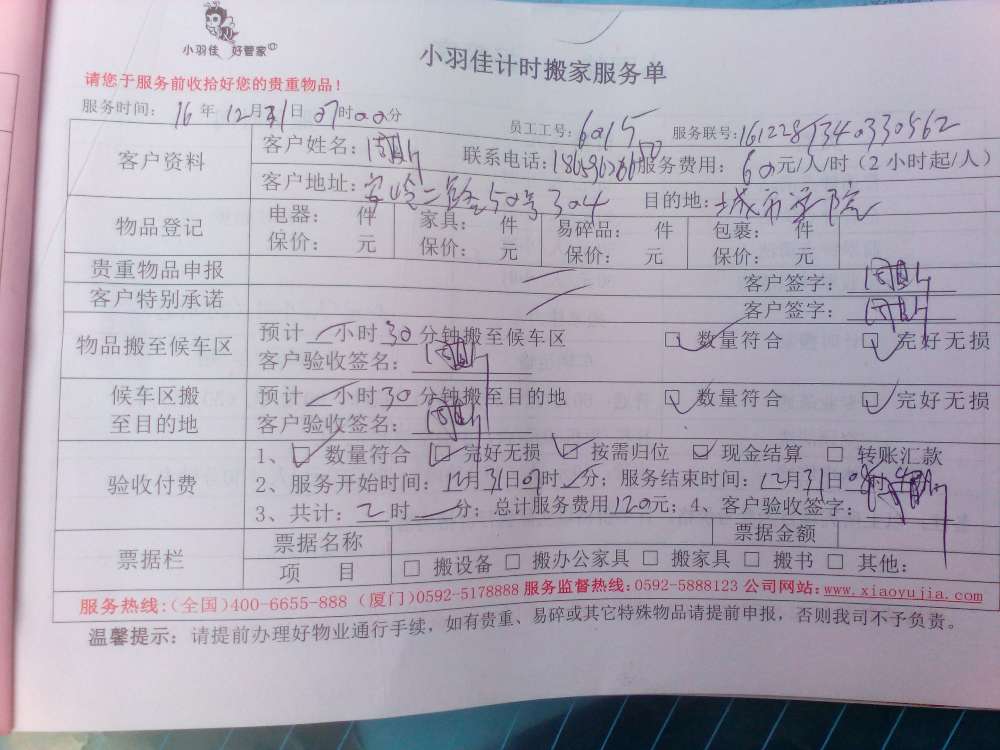 小羽佳 好管家
小羽佳计时搬家服务单
请您于服务前收拾好您的贵重物品！
服务时间：16年12月31日07时00分 员工工号：6015 服务联号：1612285340330562
客户资料 客户姓名： 联系电话： 服务费用：60元/人/时（2小时起/人）
客户地址：安岭二路50号304 目的地：城市学院
物品登记 电器： 件 家具： 件 易碎品： 件 包裹： 件
保价： 元 保价： 元 保价： 元 保价： 元
贵重物品申报 客户签字：
客户特别承诺 客户签字：
物品搬至候车区 预计 小时30分钟搬至候车区 □数量符合 □完好无损
客户验收签名：
候车区搬至目的地 预计 小时30分钟搬至目的地 □数量符合 □完好无损
客户验收签名：
验收付费 1、□数量符合 □完好无损 □按需归位 □现金结算 □转账汇款
2、服务开始时间：12月31日07时 分；服务结束时间：12月31日
3、共计：二时 分；总计服务费用120元；4、客户验收签字：
票据栏 票据名称 票据金额
项 目 □搬设备 □搬办公家具 □搬家具 □搬书 □其他：
服务热线：（全国）400-6655-888（厦门）0592-5178888 服务监督热线：0592-5888123 公司网站：www.xiaoyujia.com
温馨提示：请提前办理好物业通行手续，如有贵重、易碎或其它特殊物品请提前申报，否则我司不予负责。